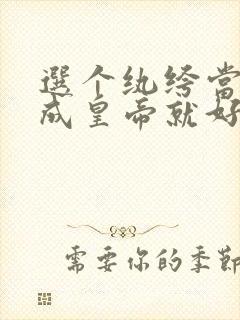 選个纨绔當
成皇帝就好
需要你的季節